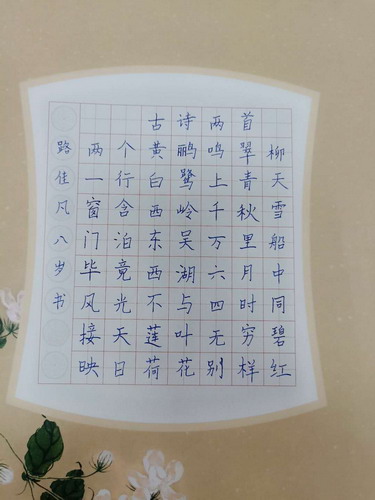 古诗两首
两个黄鹂鸣翠柳
一行白鹭上青天
窗含西岭千秋雪
门泊东吴万里船
毕竟西湖六月中
风光不与四时同
接天莲叶无穷碧
映日荷花别样红
路佳凡八岁书